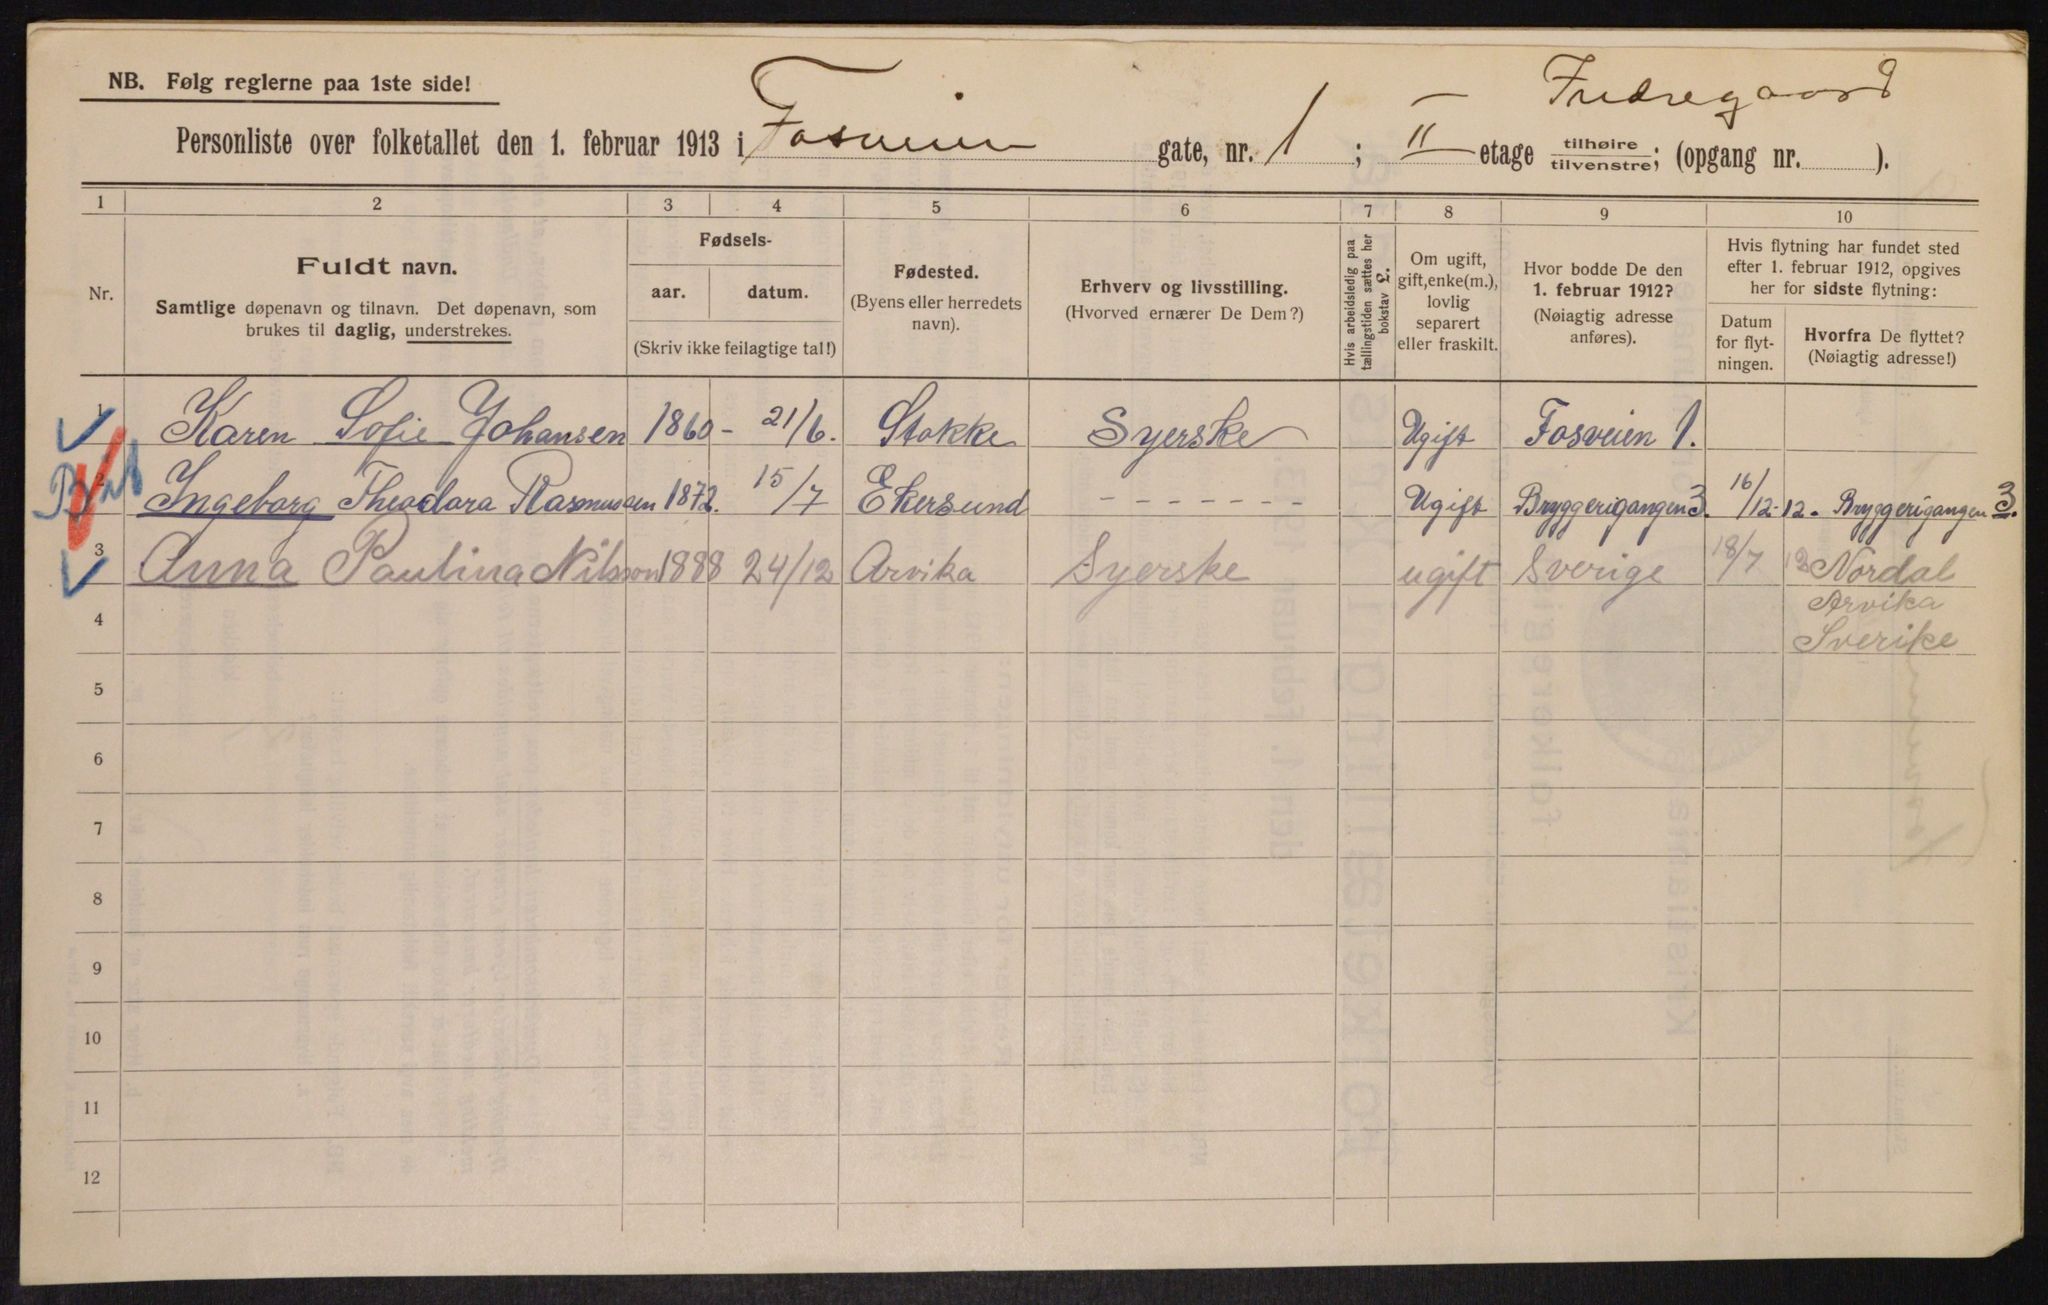 NB. Følg reglerne paa 1ste side!
Personliste over folketallet den 1. februar 1913 i Fosveien gate, nr. 1 ; II etage tilhøire/tilvenstre; (opgang nr. ).
1 2 3 4 5 6 7 8 9 10
Nr.
Fuldt navn.
Samtlige døpenavn og tilnavn. Det døpenavn, som
brukes til daglig, understrekes.
Fødsels-
aar. datum.
(Skriv ikke feilagtige tal!)
Fødested.
(Byens eller herredets
navn).
Erhverv og livsstilling.
(Hvorved ernærer De Dem?)
Hvis arbeidsledig paa
tællingstiden sættes her
bokstav L.
Om ugift,
gift, enke(m.),
lovlig
separert
eller fraskilt.
Hvor bodde De den
1. februar 1912?
(Nøiagtig adresse
anføres).
Hvis flytning har fundet sted
efter 1. februar 1912, opgives
her for sidste flytning:
Datum
for flyt-
ningen.
Hvorfra De flyttet?
(Nøiagtig adresse!)
1 Karen Sofie Johansen 1860 - 21/6. Stokke Syerske Ugift Fosveien 1.
2 Ingeborg Theodora Rasmussen 1872. 15/7 Ekersund - - - - - - - Ugift Bryggerigangen 3. 16/12-12. Bryggerigangen 3.
3 Anna Paulina Nilsson 1888 24/12 Arvika Syerske ugift Sverige 18/7 12 Nordal
Arvika
4 Sverike
5
6
7
8
9
10
11
12